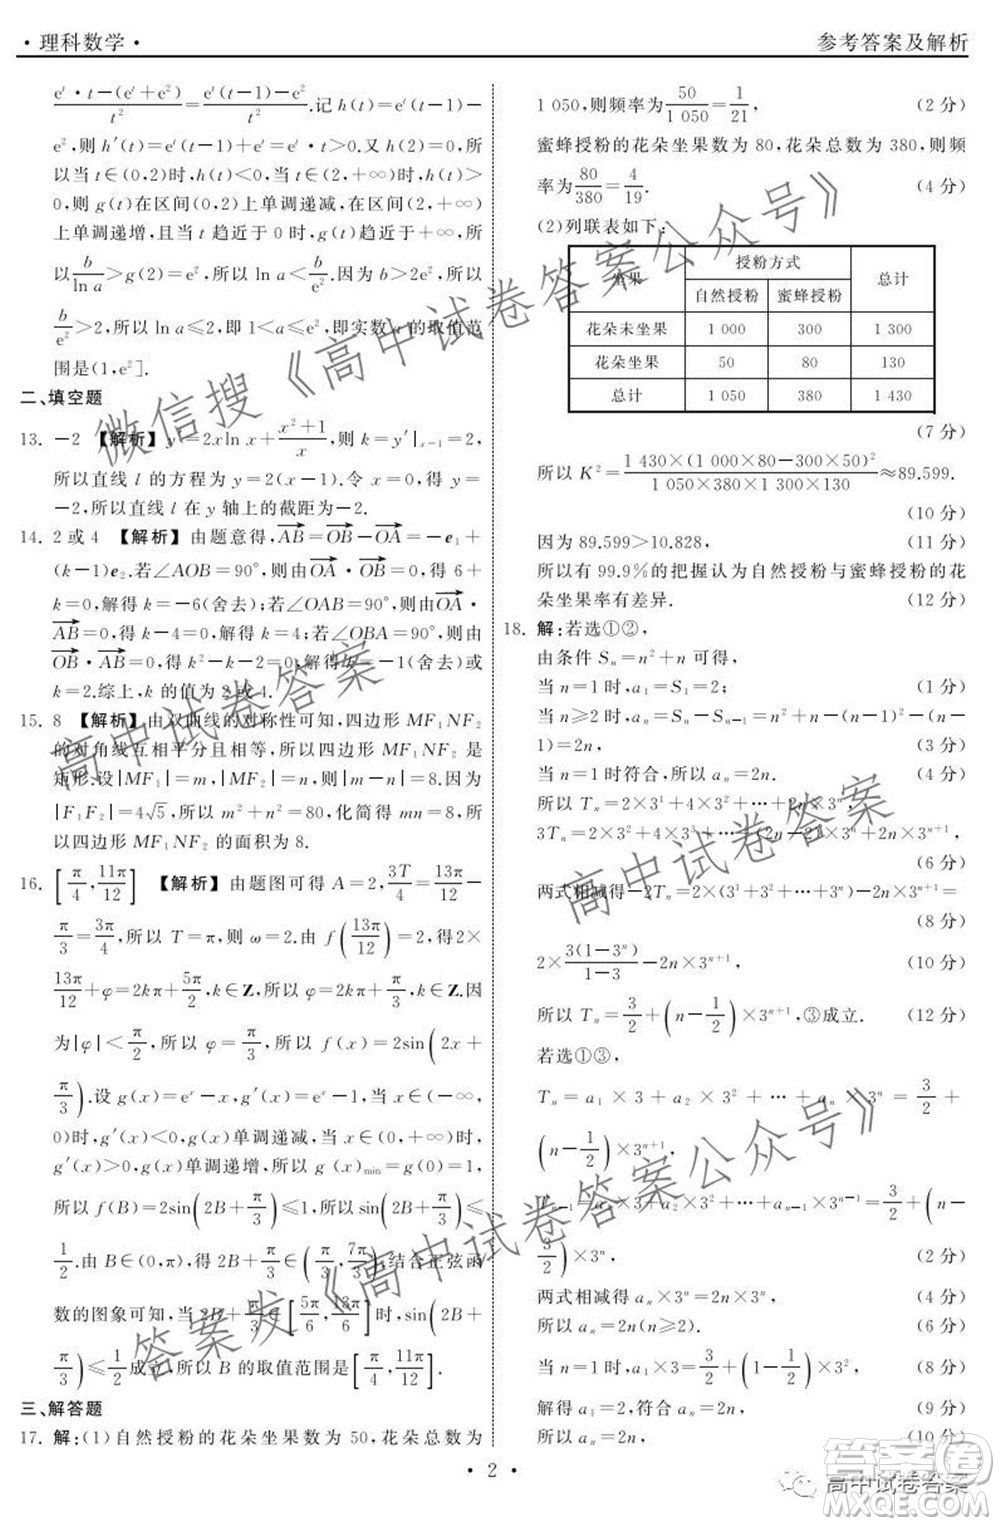 · 理科数学 ·
参考答案及解析
e^t·t-(e^t+e²)/t² = e^t(t-1)-e²/t². 记h(t)=e^t(t-1)-
e²,则h′(t)=e^t(t-1)+e^t=e^t·t>0.又h(2)=0,所
以当t∈(0,2)时,h(t)<0,当t∈(2,+∞)时,h(t)>
0,所以g(t)在区间(0,2)上单调递减,在(2,+∞)
上单调递增,且当t趋近于0时,g(t)趋近于+∞,所
以b/ln a>g(2)=e²,所以ln a<b/e².因为b>2e²,所以
b/e²>2,所以ln a≤2,即1<a≤e²,即实数a的取值范
围是(1,e²].
二、填空题
13. -2 【解析】y′=2xln x+(x²+1)/x,则k=y′|ₓ₌₁=2,
所以直线l的方程为y=2(x-1).令x=0,得y=
-2,所以直线l在y轴上的截距为-2.
14. 2或4 【解析】由题意得,AB=OB-OA=-e₁+
(k-1)e₂.若∠AOB=90°,则OA·OB=0,得6+
k=0,解得k=-6(舍去);若∠OAB=90°,则OA·
AB=0,得k-4=0,解得k=4;若∠OBA=90°,则
OB·AB=0,得k²-k-2=0,解得k=-1(舍去)或
k=2.综上,k的值为2或4.
15. 8 【解析】由双曲线的对称性可知,四边形MF₁NF₂
的对角线互相平分且相等,所以四边形MF₁NF₂是
矩形.设|MF₁|=m,|MF₂|=n,则|m-n|=8.因为
|F₁F₂|=4√5,所以m²+n²=80,化简得mn=8,所
以四边形MF₁NF₂的面积为8.
16. [π/4,11π/12] 【解析】由题图可得A=2,3T/4=13π/12-
π/3=3π/4,所以T=π,则ω=2.由f(13π/12)=2,得2×
13π/12+φ=2kπ+5π/2,k∈Z,所以φ=2kπ+π/3,k∈Z.因
为|φ|<π/2,所以φ=π/3,所以f(x)=2sin(2x+
π/3).设g(x)=eˣ-x,g′(x)=eˣ-1,当x∈(-∞,
0)时,g′(x)<0,g(x)单调递减,当x∈(0,+∞)时,
g′(x)>0,g(x)单调递增,所以g(x)min=g(0)=1,
所以f(B)=2sin(2B+π/3)≤1,所以sin(2B+π/3)≤
1/2.由B∈(0,π),得2B+π/3∈(π/3,7π/3),结合正弦函
数的图象可知,当2B+π/3∈[5π/6,13π/6]时,sin(2B+
π/3)≤1/2成立,所以B的取值范围是[π/4,11π/12].
三、解答题
17. 解:(1)自然授粉的花朵坐果数为50,花朵总数为
1 050,则频率为50/1 050=1/21, (2分)
蜜蜂授粉的花朵坐果数为80,花朵总数为380,则频
率为80/380=4/19. (4分)
(2)列联表如下:
坐果 授粉方式 总计
自然授粉 蜜蜂授粉
花朵未坐果 1 000 300 1 300
花朵坐果 50 80 130
总计 1 050 380 1 430
(7分)
所以K²=1 430×(1 000×80-300×50)²/1 050×380×1 300×130≈89.599.
(10分)
因为89.599>10.828, (11分)
所以有99.9%的把握认为自然授粉与蜜蜂授粉的花
朵坐果率有差异. (12分)
18. 解:若选①②,
由条件Sₙ=n²+n可得,
当n=1时,a₁=S₁=2; (1分)
当n≥2时,aₙ=Sₙ-Sₙ₋₁=n²+n-(n-1)²-(n-
1)=2n, (3分)
当n=1时符合,所以aₙ=2n. (4分)
所以Tₙ=2×3¹+4×3²+6×3³+…+2n×3ⁿ,
3Tₙ=2×3²+4×3³+…+(2n-2)×3ⁿ+2n×3ⁿ⁺¹,
(6分)
两式相减得-2Tₙ=2×(3¹+3²+…+3ⁿ)-2n×3ⁿ⁺¹=
(8分)
2×3(1-3ⁿ)/1-3-2n×3ⁿ⁺¹, (10分)
所以Tₙ=3/2+(n-1/2)×3ⁿ⁺¹,③成立. (12分)
若选①③,
Tₙ=a₁×3+a₂×3²+a₃×3³+…+aₙ×3ⁿ=3/2+
(n-1/2)×3ⁿ⁺¹,
Tₙ₋₁=a₁×3+a₂×3²+…+aₙ₋₁×3ⁿ⁻¹=3/2+(n-
3/2)×3ⁿ, (2分)
两式相减得aₙ×3ⁿ=2n×3ⁿ, (4分)
所以aₙ=2n(n≥2). (6分)
当n=1时,a₁×3=3/2+(1-1/2)×3², (8分)
解得a₁=2,符合aₙ=2n, (9分)
所以aₙ=2n, (10分)
· 2 ·
微信搜《高中试卷答案公众号》
高中试卷答案
高中试卷答案
答案发《高中试卷答案公众号》
高中试卷答案
答案圈
MXQE.COM